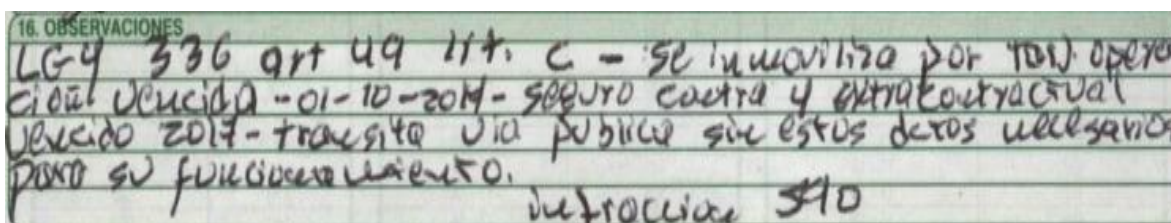 16. OBSERVACIONES
LEY 336 art 49 lit. C - se inmoviliza por tarj. opera
ción vencida - 01-10-2017 - seguro contra y extracontractual
vencido 2017 - transita via publica sin estos datos necesarios
para su funcionamiento.
infraccion 590